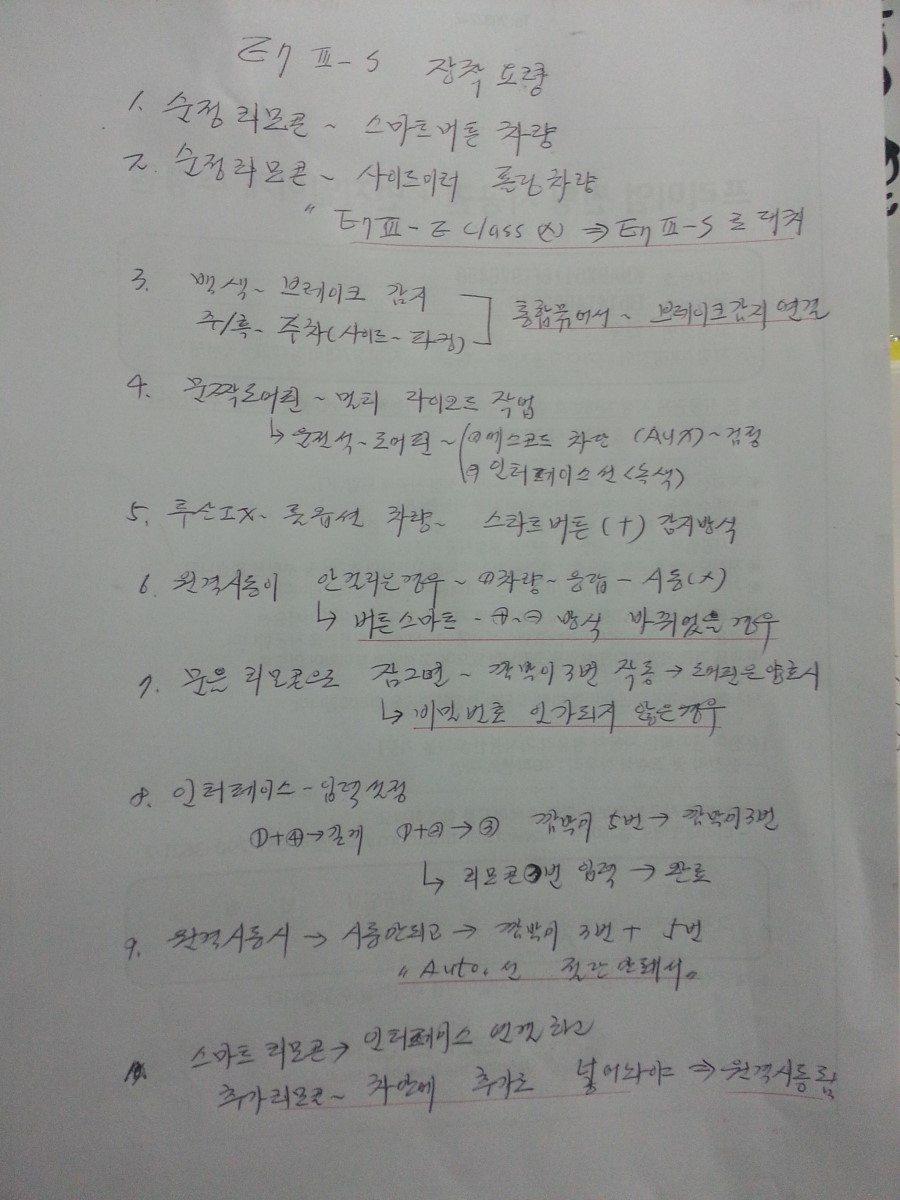 Eη Ⅲ-S 장착 요령
1. 순정 리모콘 ~ 스마트버튼 차량
2. 순정리모콘 ~ 사이드미러 폴딩차량
" Eη Ⅲ - E class (X) ⇒ Eη Ⅲ-S 로 대처
3. 백색~ 브레이크 감지
주/흑~ 주차(사이드~파킹)
통합묶어서~ 브레이크감지 연결
4. 문짝도어핀 ~ 멀티 다이오드 작업
↳ 운전석~도어핀 ~ ㉮에스코트 차단 (AUX)~검정
㉯ 인터페이스선 (녹색)
5. 투산IX~ 풀옵션 차량~ 스타트버튼 (+) 감지방식
6. 원격시동이 안걸리는경우 ~ ㉮차량~응답 - 시동(X)
↳ 버튼스마트 - ⊕~⊖ 방식 바뀌었을 경우
7. 문을 리모콘으로 잠그면 ~ 깜박이 3번 작동 → 도어핀은 양호시
↳ 비밀번호 인가되지 않은경우
8. 인터페이스 - 입력설정
①+④→길게 ①+②→③ 깜박이 5번 → 깜박이3번
↳ 리모콘③번 입력 → 완료
9. 원격시동시 → 시동안되고 → 깜박이 3번 + 5번
"Auto. 선 절단 안돼서"
스마트 리모콘→ 인터페이스 연결하고
추가리모콘~ 차안에 추가로 넣어놔야 ⇒ 원격시동됨